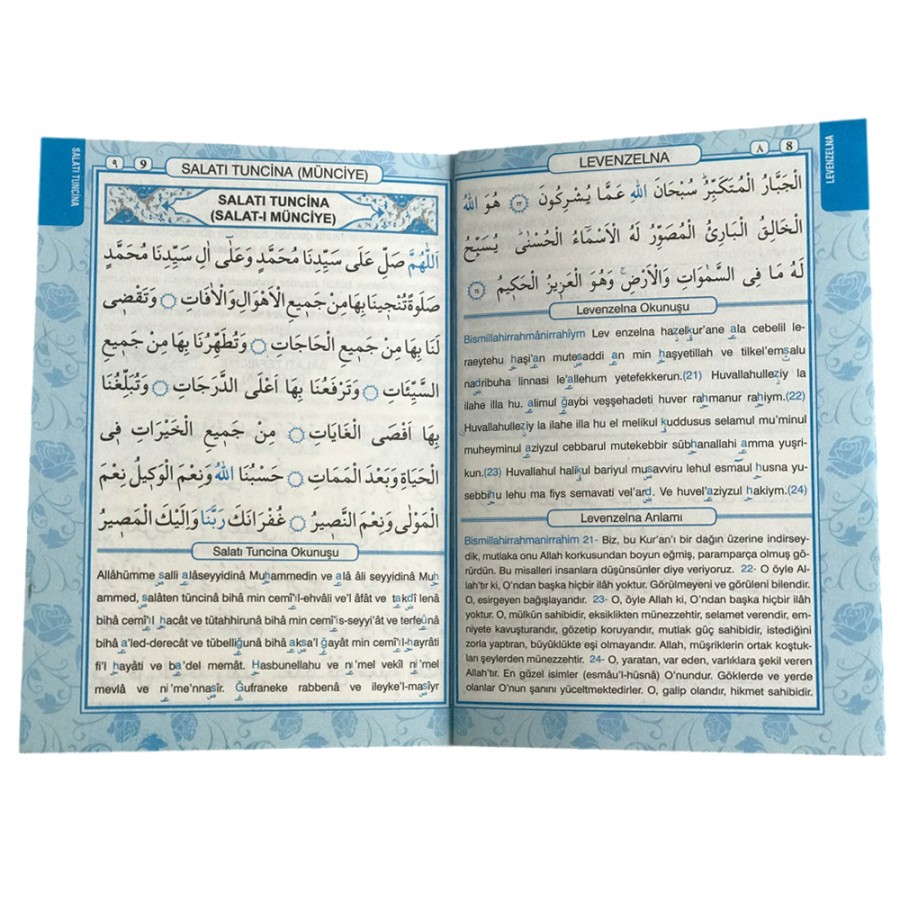 LEVENZELNA
٨ 8
LEVENZELNA
الْجَبَّارُ الْمُتَكَبِّرُ سُبْحَانَ اللهِ عَمَّا يُشْرِكُونَ ﴿٢٣﴾ هُوَ اللهُ
الْخَالِقُ الْبَارِئُ الْمُصَوِّرُ لَهُ الْاَسْمَاءُ الْحُسْنٰى يُسَبِّحُ
لَهُ مَا فِى السَّمٰوَاتِ وَالْاَرْضِ وَهُوَ الْعَزِيزُ الْحَكِيمُ ﴿٢٤﴾
Levenzelna Okunuşu
Bismillahirrahmânirrahîym Lev enzelna hazelkur'ane ala cebelil le-
raeytehu haşi'an mutesaddi an min haşyetillah ve tilkel'emsalu
nadribuha linnasi le'allehum yetefekkerun.(21) Huvallahulleziy la
ilahe illa hu. alimul ğaybi veşşehadeti huver rahmanur rahiym.(22)
Huvallahulleziy la ilahe illa hu el melikul kuddusus selamul mu'minul
muheyminul aziyzul cebbarul mutekebbir sübhanallahi amma yuşri-
kun.(23) Huvallahul halikul bariyul musavviru lehul esmâul husna yu-
sebbihu lehu ma fiys semavati vel'ard. Ve huvel'aziyzul hakiym.(24)
Levenzelna Anlamı
Bismillahirrahmanirrahim 21- Biz, bu Kur'an'ı bir dağın üzerine indirsey-
dik, mutlaka onu Allah korkusundan boyun eğmiş, paramparça olmuş gö-
rürdün. Bu misalleri insanlara düşünsünler diye veriyoruz. 22- O öyle Al-
lah'tır ki, O'ndan başka hiçbir ilâh yoktur. Görülmeyeni ve görüleni bilendir.
O, esirgeyen bağışlayandır. 23- O, öyle Allah ki, O'ndan başka hiçbir ilâh
yoktur. O, mülkün sahibidir, eksiklikten münezzehtir, selamet verendir, em-
niyete kavuşturandır, gözetip koruyandır, mutlak güç sahibidir, istediğini
zorla yaptıran, büyüklükte eşi olmayandır. Allah, müşriklerin ortak koştuk-
ları şeylerden münezzehtir. 24- O, yaratan, var eden, varlıklara şekil veren
Allah'tır. En güzel isimler (esmâu'l-hüsnâ) O'nundur. Göklerde ve yerde
olanlar O'nun şanını yüceltmektedirler. O, galip olandır, hikmet sahibidir.
SALATI TUNCİNA
٩ 9
SALATI TUNCİNA (MÜNCİYE)
SALATI TUNCİNA
(SALAT-I MÜNCİYE)
اَللّٰهُمَّ صَلِّ عَلٰى سَيِّدِنَا مُحَمَّدٍ وَعَلٰٓى اٰلِ سَيِّدِنَا مُحَمَّدٍ
صَلٰوةً تُنْجِينَا بِهَا مِنْ جَمِيعِ الْاَهْوَالِ وَالْاٰفَاتِ ۞ وَتَقْضِى
لَنَا بِهَا مِنْ جَمِيعِ الْحَاجَاتِ ۞ وَتُطَهِّرُنَا بِهَا مِنْ جَمِيعِ
السَّيِّئَاتِ ۞ وَتَرْفَعُنَا بِهَا اَعْلَى الدَّرَجَاتِ ۞ وَتُبَلِّغُنَا
بِهَا اَقْصَى الْغَايَاتِ ۞ مِنْ جَمِيعِ الْخَيْرَاتِ فِى
الْحَيَاةِ وَبَعْدَ الْمَمَاتِ ۞ حَسْبُنَا اللهُ وَنِعْمَ الْوَكِيلُ نِعْمَ
الْمَوْلٰى وَنِعْمَ النَّصِيرُ ۞ غُفْرَانَكَ رَبَّنَا وَاِلَيْكَ الْمَصِيرُ
Salatı Tuncina Okunuşu
Allâhümme salli alâseyyidinâ Muhammedin ve alâ âli seyyidinâ Muh
ammed, salâten tüncinâ bihâ min cemî'l-ehvâli ve'l âfât ve takdî lenâ
bihâ cemî'l hacât ve tütahhirunâ bihâ min cemî'is-seyyi'ât ve terfeûnâ
bihâ a'led-derecât ve tübelliğunâ bihâ aksa'l ğayât min cemî'l-hayrâti
fi'l hayâti ve ba'del memât. Hasbunellahu ve ni'mel vekîl ni'mel
mevlâ ve ni'me'nnasîr. Ğufraneke rabbenâ ve ileyke'l-masîyr